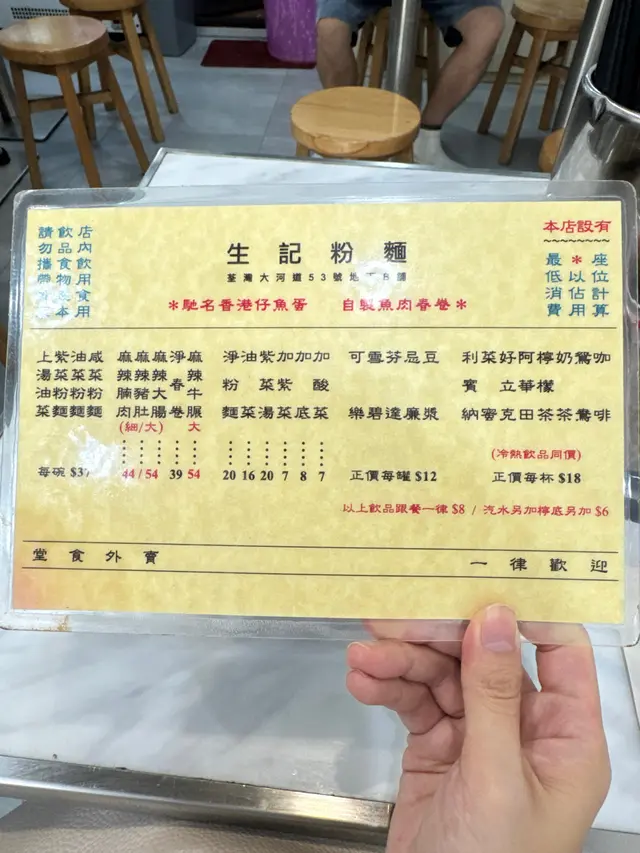 請勿攜帶外來
飲品食物在本
店內飲用食用
生記粉麵
荃灣大河道53號地下B舖
*馳名香港仔魚蛋 自製魚肉春卷*
本店設有
~~~~~~~~
最低消費
*以佔用
座位計算
上湯油菜
紫菜粉麵
油菜粉麵
咸菜粉麵
每碗 $37
麻辣腩肉
麻辣豬肚
麻辣大腸
(細/大)
44 / 54
淨春卷
39
麻辣牛
大
54
淨粉麵 20
油菜 16
紫菜湯 20
加紫菜 7
加底 8
加酸菜 7
可樂
雪碧
芬達
忌廉
豆漿
正價每罐 $12
利賓納
菜密
好立克
阿華田
檸檬茶
奶茶
鴛鴦
咖啡
(冷熱飲品同價)
正價每杯 $18
以上飲品跟餐一律 $8 / 汽水另加檸底另加 $6
堂食外賣 一律歡迎